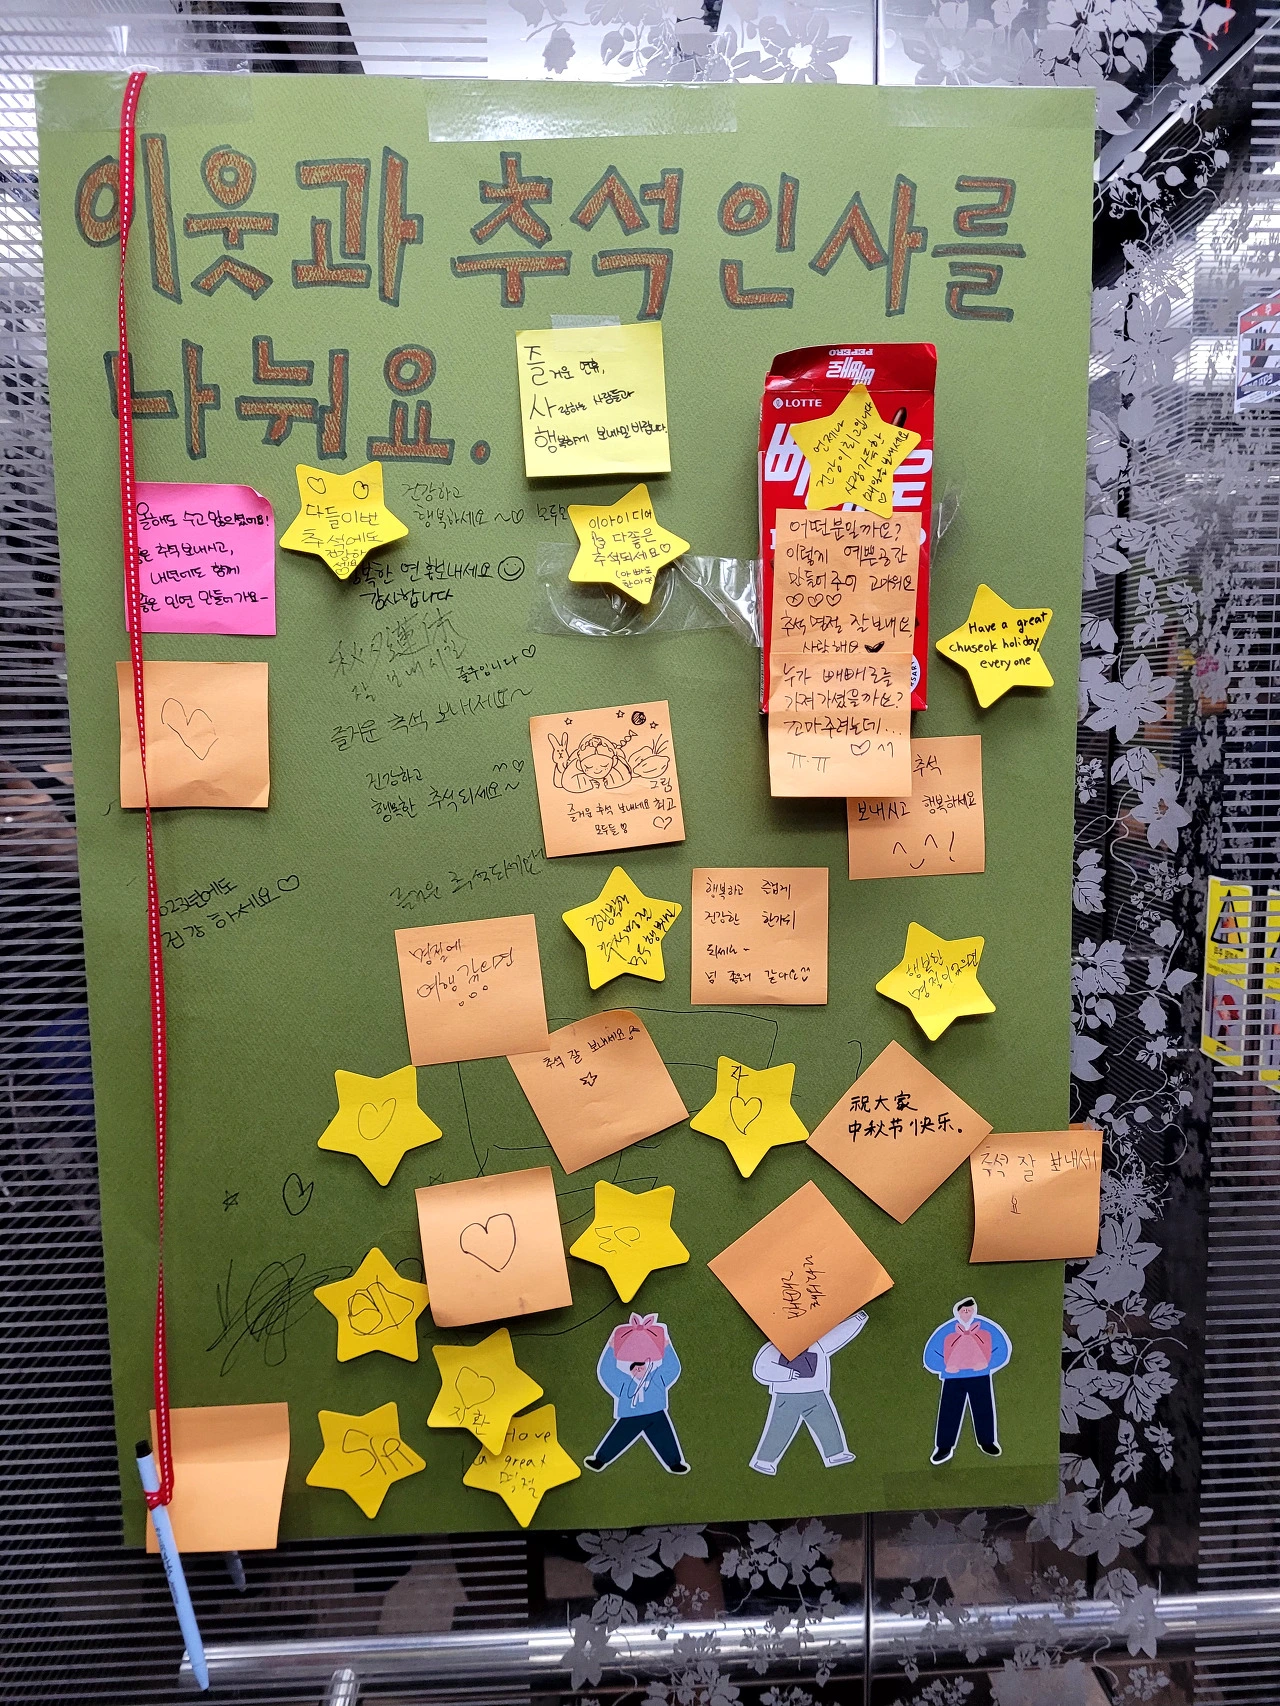 이웃과 추석 인사를
나눠요.
즐거운 연휴,
사랑하는 사람들과
행복하게 보내시길 바랍니다.
PEPERO
빼빼로
LOTTE
언제나
건강이 최고입니다
사랑 가득한
매일을 보내세요
어떤분일까요?
이렇게 예쁜공간
만들어 주어 고마워요
추석 명절 잘 보내요
사랑해요
누가 빼빼로를
가져가셨을까요?
꼬마주려는데...
ㅠ.ㅠ ♡^^
올해도 수고 많으셨어요!
은 추석 보내시고,
내년에도 함께
좋은 인연 만들어가요-
다들 이번
추석에도
건강하
세요
건강하고
행복하세요~♡
모두모
행복한 연휴보내세요
감사합니다
이 아이디어
다 좋은
추석되세요♡
Have a great
chuseok holiday
everyone
秋夕
잘 보내시길
즐추입니다♡
즐거운 추석 보내세요~
건강하고
행복한 추석되세요~
그림
즐거운 추석 보내세요 최고
모두들
추석
보내시고 행복하세요
^_^!
023년에도
건강 하세요♡
즐거운 추석되세요
명절에
여행 감
추석명절
모두 행복
행복하고 즐겁게
건강한 한가위
되세요-
넘 좋은거 같아요
행복한
명절
추석 잘 보내세요
祝大家
中秋节快乐。
추석 잘 보내세
요
지환
Have
a great
명절